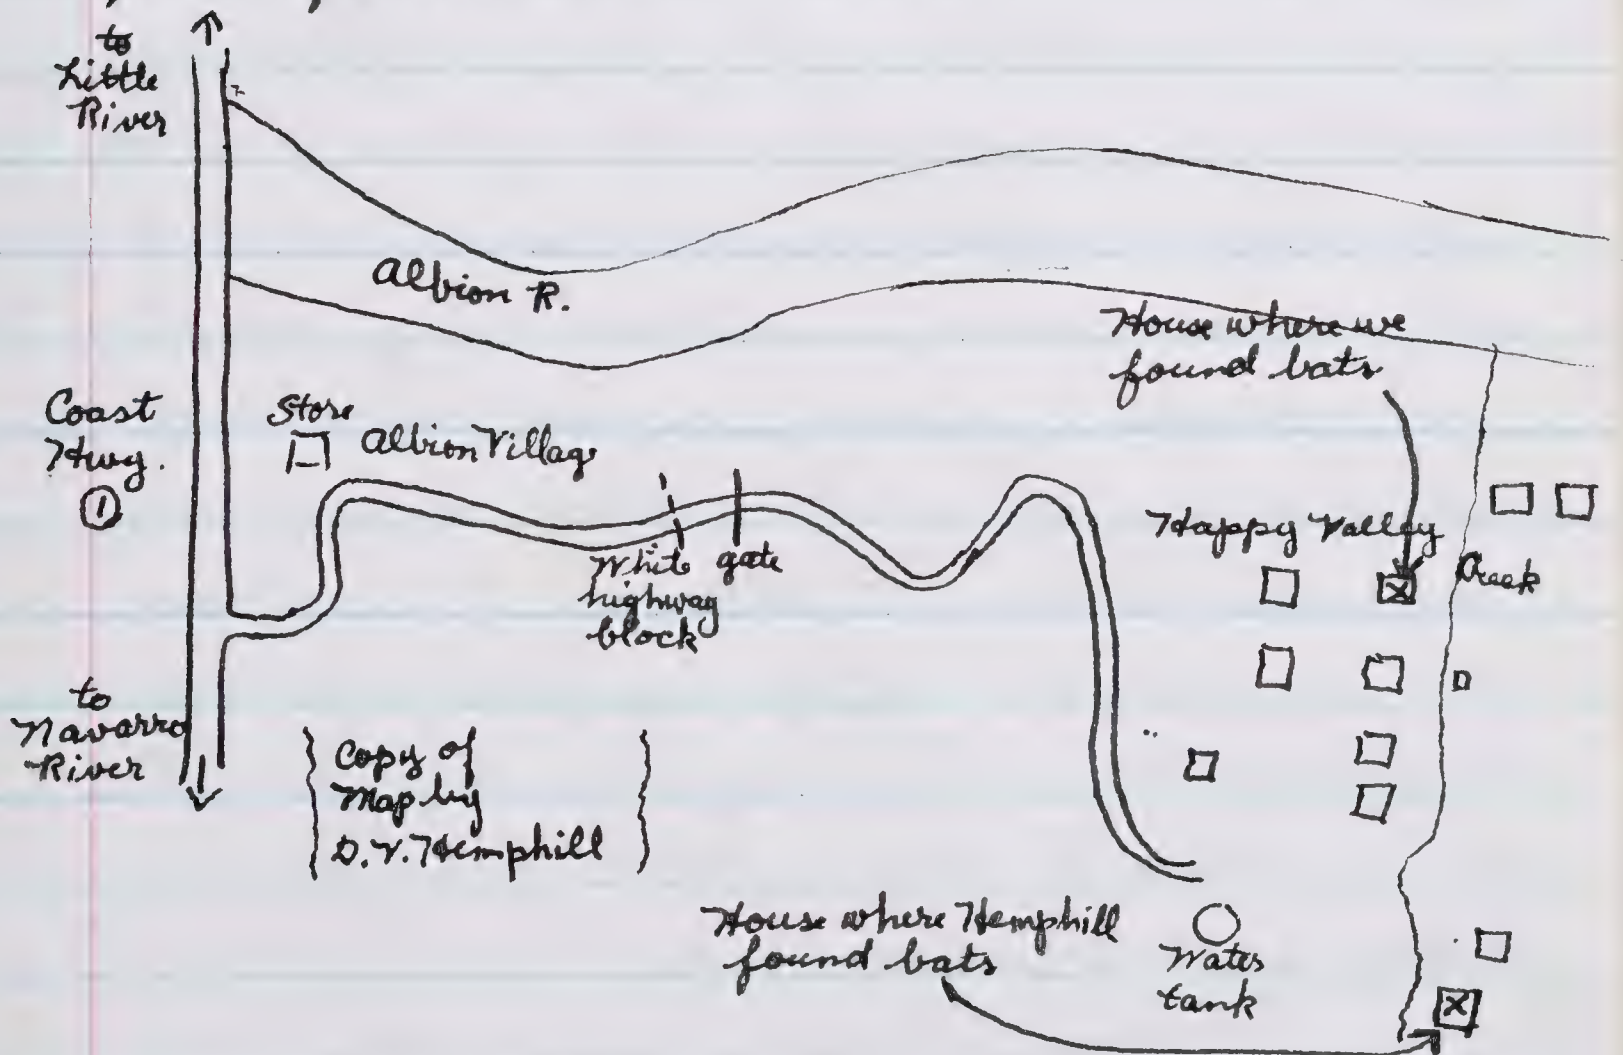 to
Little
River
Albion R.
House where we
found bats
Coast
Hwy.
1
Store
Albion Village
White
highway
block
gate
Happy Valley
Creek
to
Navarro
River
Copy of
Map by
D.V. Hemphill
House where Hemphill
found bats
Water
tank